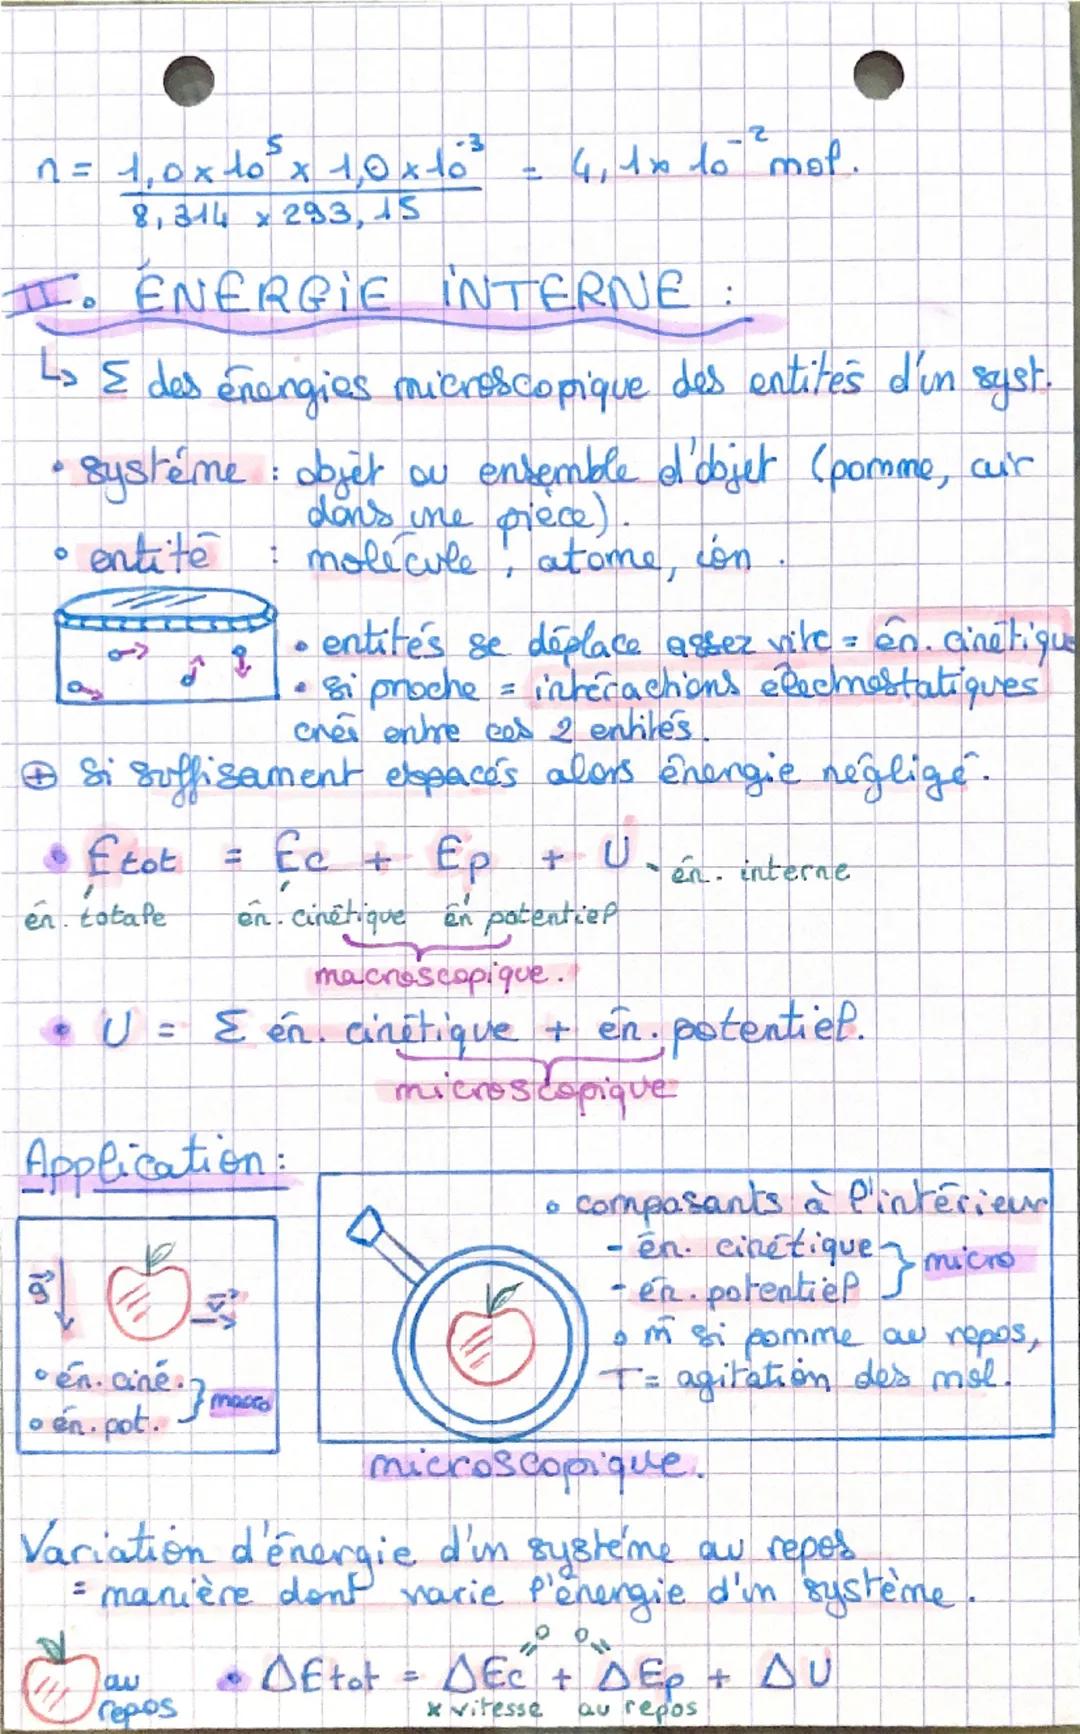 n = 1,0 x 10⁵ x 1,0 x 10⁻³ = 4,1 x 10⁻² mol.
8,314 x 293,15
II. ÉNERGIE INTERNE :
↳ Σ des énergies microscopique des entités d'un syst.
• système : objet ou ensemble d'objet (pomme, air
dans une pièce).
• entité : molécule, atome, ion.
• entités se déplace assez vite = én. cinétique
• si proche = intéractions électrostatiques
créi entre ces 2 entités.
⊕ si suffisament espacés alors énergie négligé.
• Etot = Ec + Ep + U - én. interne
én. totale én. cinétique én potentiel
macroscopique.
• U = Σ én. cinétique + én. potentiel.
microscopique
Application :
g v
• én. ciné. } macro
• én. pot.
• composants à l'intérieur
- én. cinétique } micro
- én. potentiel
• m̂ si pomme au repos,
T = agitation des mol.
microscopique.
Variation d'énergie d'un système au repos
= manière dont varie l'énergie d'un système.
=0 0=
au
repos
• ΔEtot = ΔEc + ΔEp + ΔU
x vitesse au repos